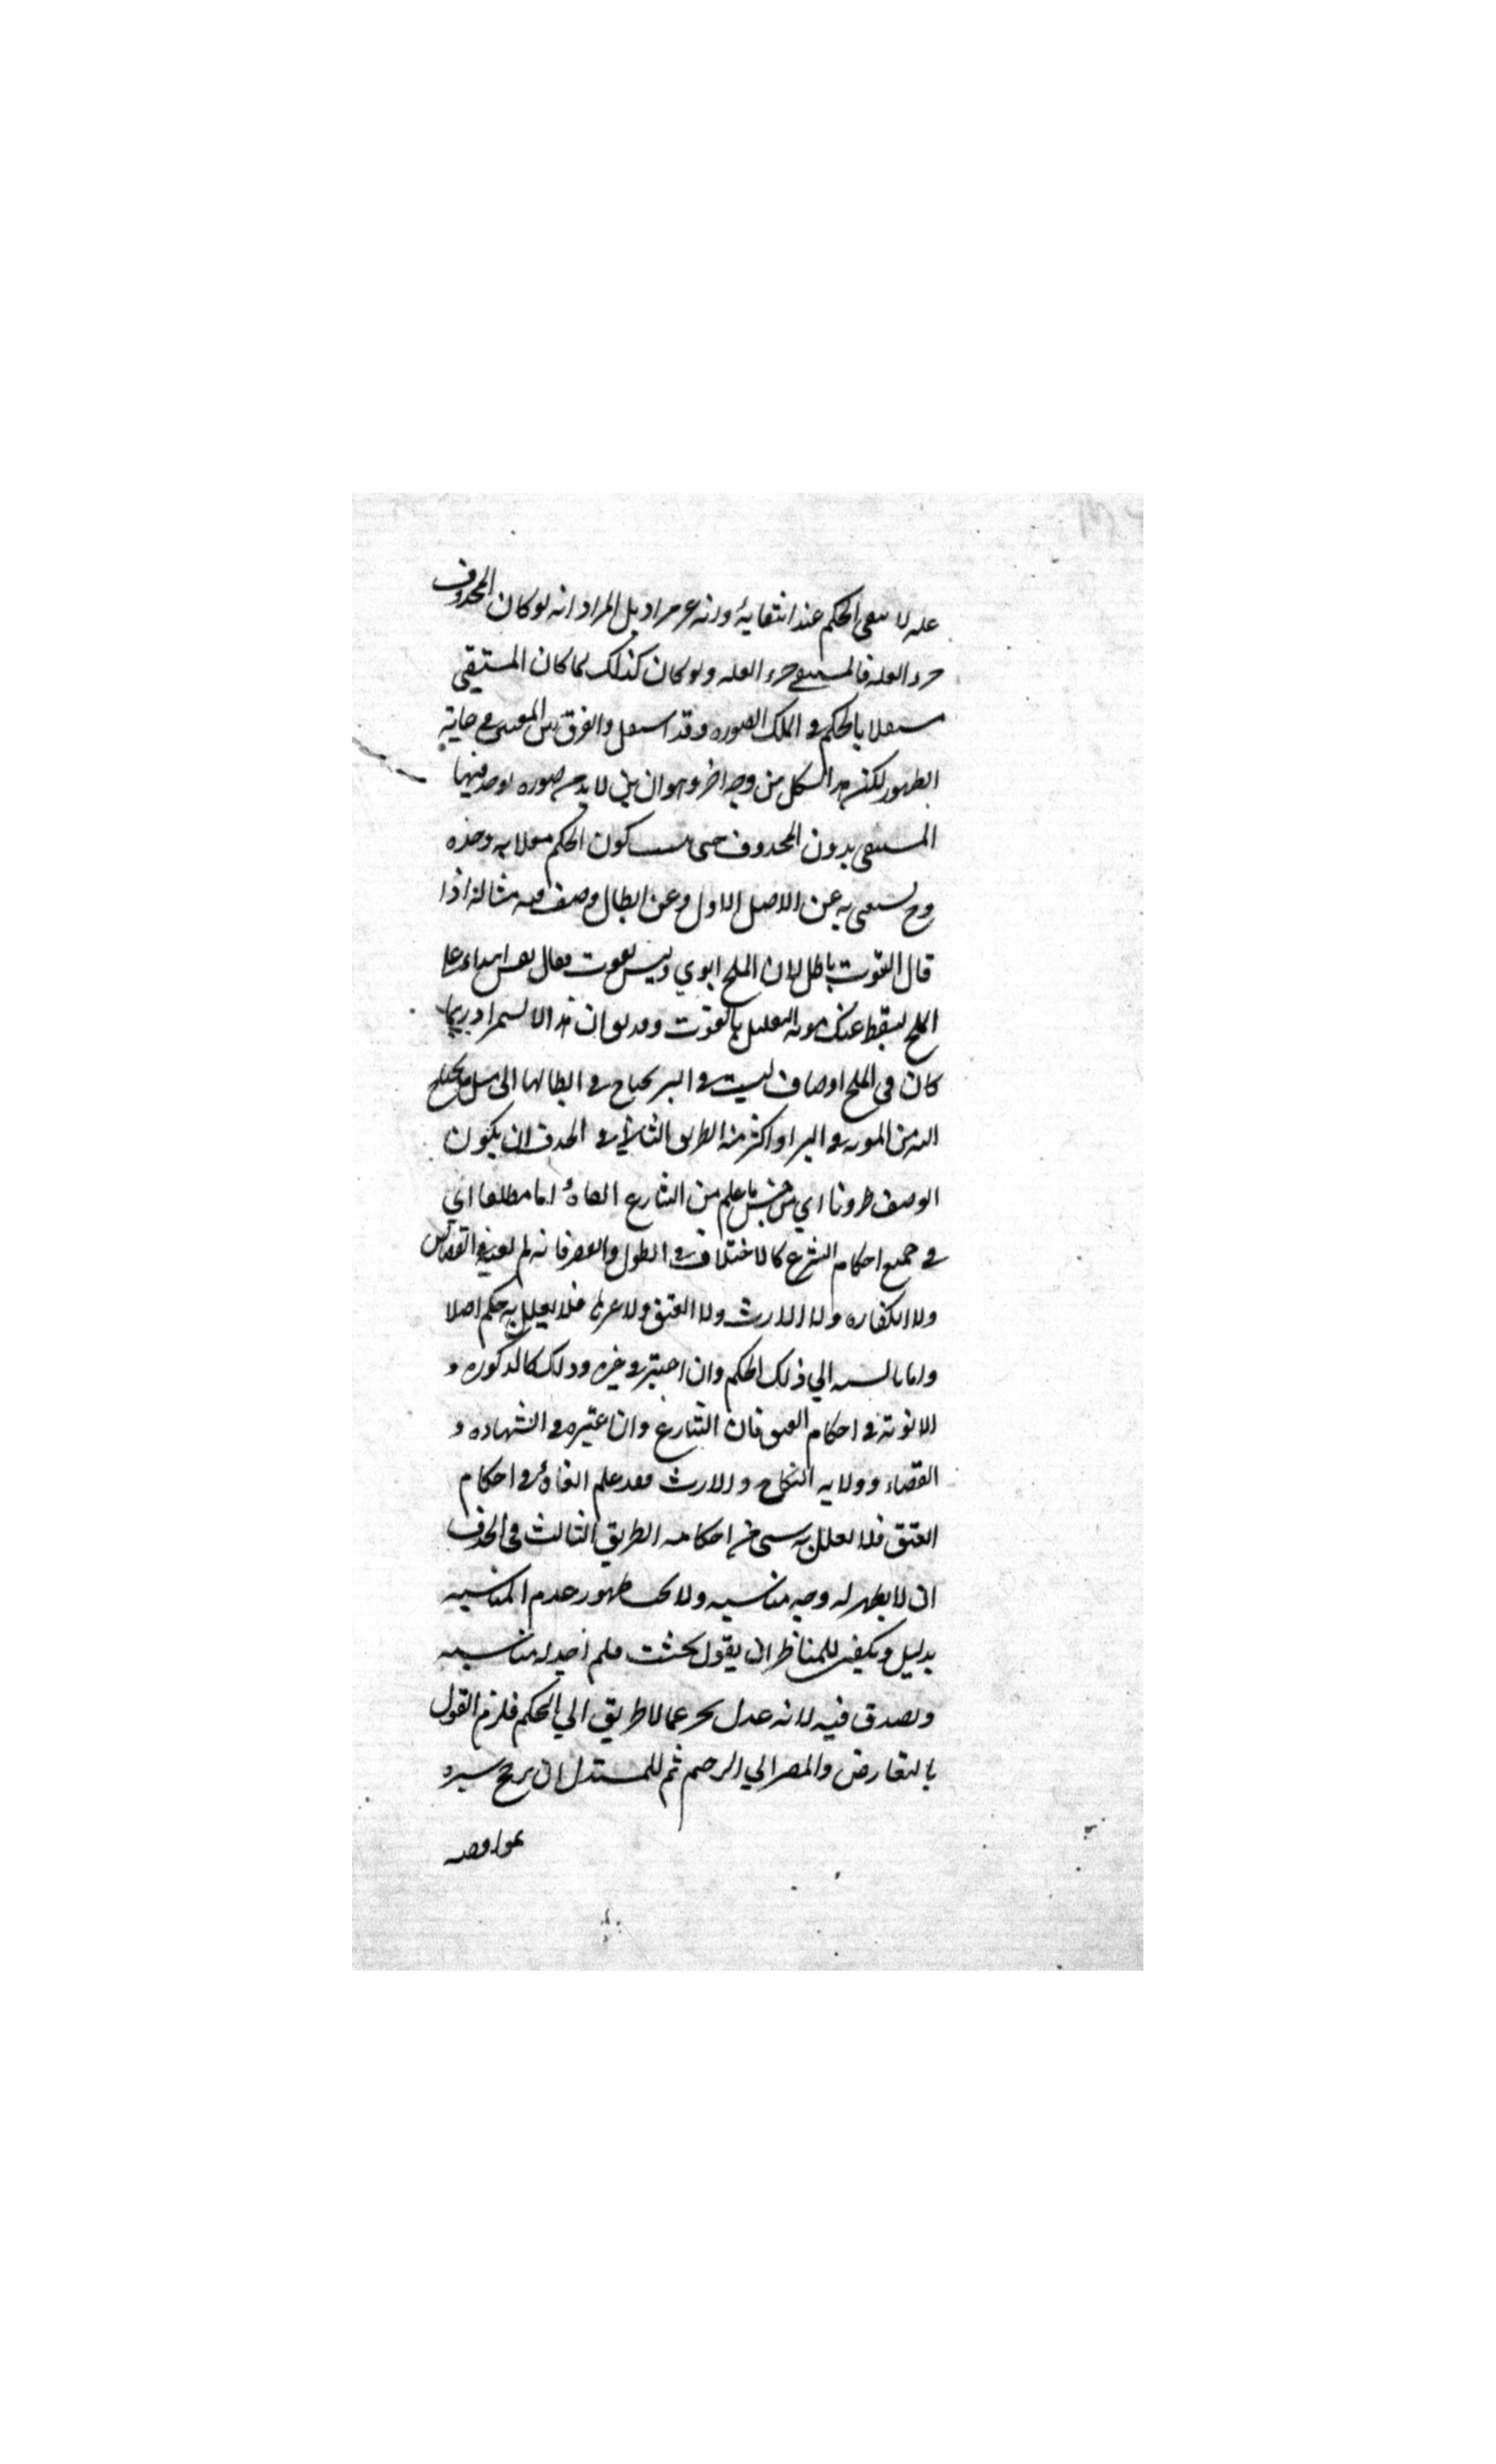 علة لا ينفي الحكم عند انتفايه وانه غير مراد بل المراد انه لو كان المحذوف
جزء العلة فالمستبقى جزء العلة ولو كان كذلك لما كان المستبقي
مستقلا بالحكم في الملك الصورة وقد استقل والفرق بين المعنيين في غاية
الظهور لكنه مشكل من وجه اخر وهو ان يق لا بد من صورة يوجد فيها
المستبقى بدون المحذوف حتى يثبت كون الحكم معللا به وحده
وح يستغني به عن الاصل الاول وعن ابطال وصف فيه مثاله اذا
قال القوت باطل لان الملح ربوي وليس بقوت فيقال فقس ابتداء على
الملح ليسقط عنك مؤنة التعليل بالقوت وقد يق ان هذا لا يستمر اذ ربما
كان في الملح اوصاف ليست في البر يحتاج في ابطالها الى مثل ما يحتاج
اليه من المونة في البر او اكثر منه الطريق الثاني في الحذف ان يكون
الوصف طرديا اي من جنس ما علم من الشارع الغاؤه اما مطلقا اي
في جميع احكام الشرع كالاختلاف في الطول والقصر فانه لم يعتبر في القصاص
ولا الكفارة ولا الارث ولا العتق ولا غيرها فلا يعلل به حكم اصلا
واما بالنسبة الي ذلك الحكم وان اعتبر في غيره وذلك كالذكورة و
الانوثة في احكام العتق فان الشارع وان اعتبره في الشهادة و
القضاء وولاية النكاح والارث فقد علم الغاؤه في احكام
العتق فلا يعلل به شيء من احكامه الطريق الثالث في الحذف
ان لا يظهر له وجه مناسبة ولا يجب ظهور عدم المناسبة
بدليل ويكفي للمناظر ان يقول بحثت فلم اجد له مناسبة
ويصدق فيه لانه عدل يخبر عما لا طريق الي الحكم فلزم القول
بالتعارض والمصير الي الترجيح ثم للمستدل ان يرجح سبره
بموافقة